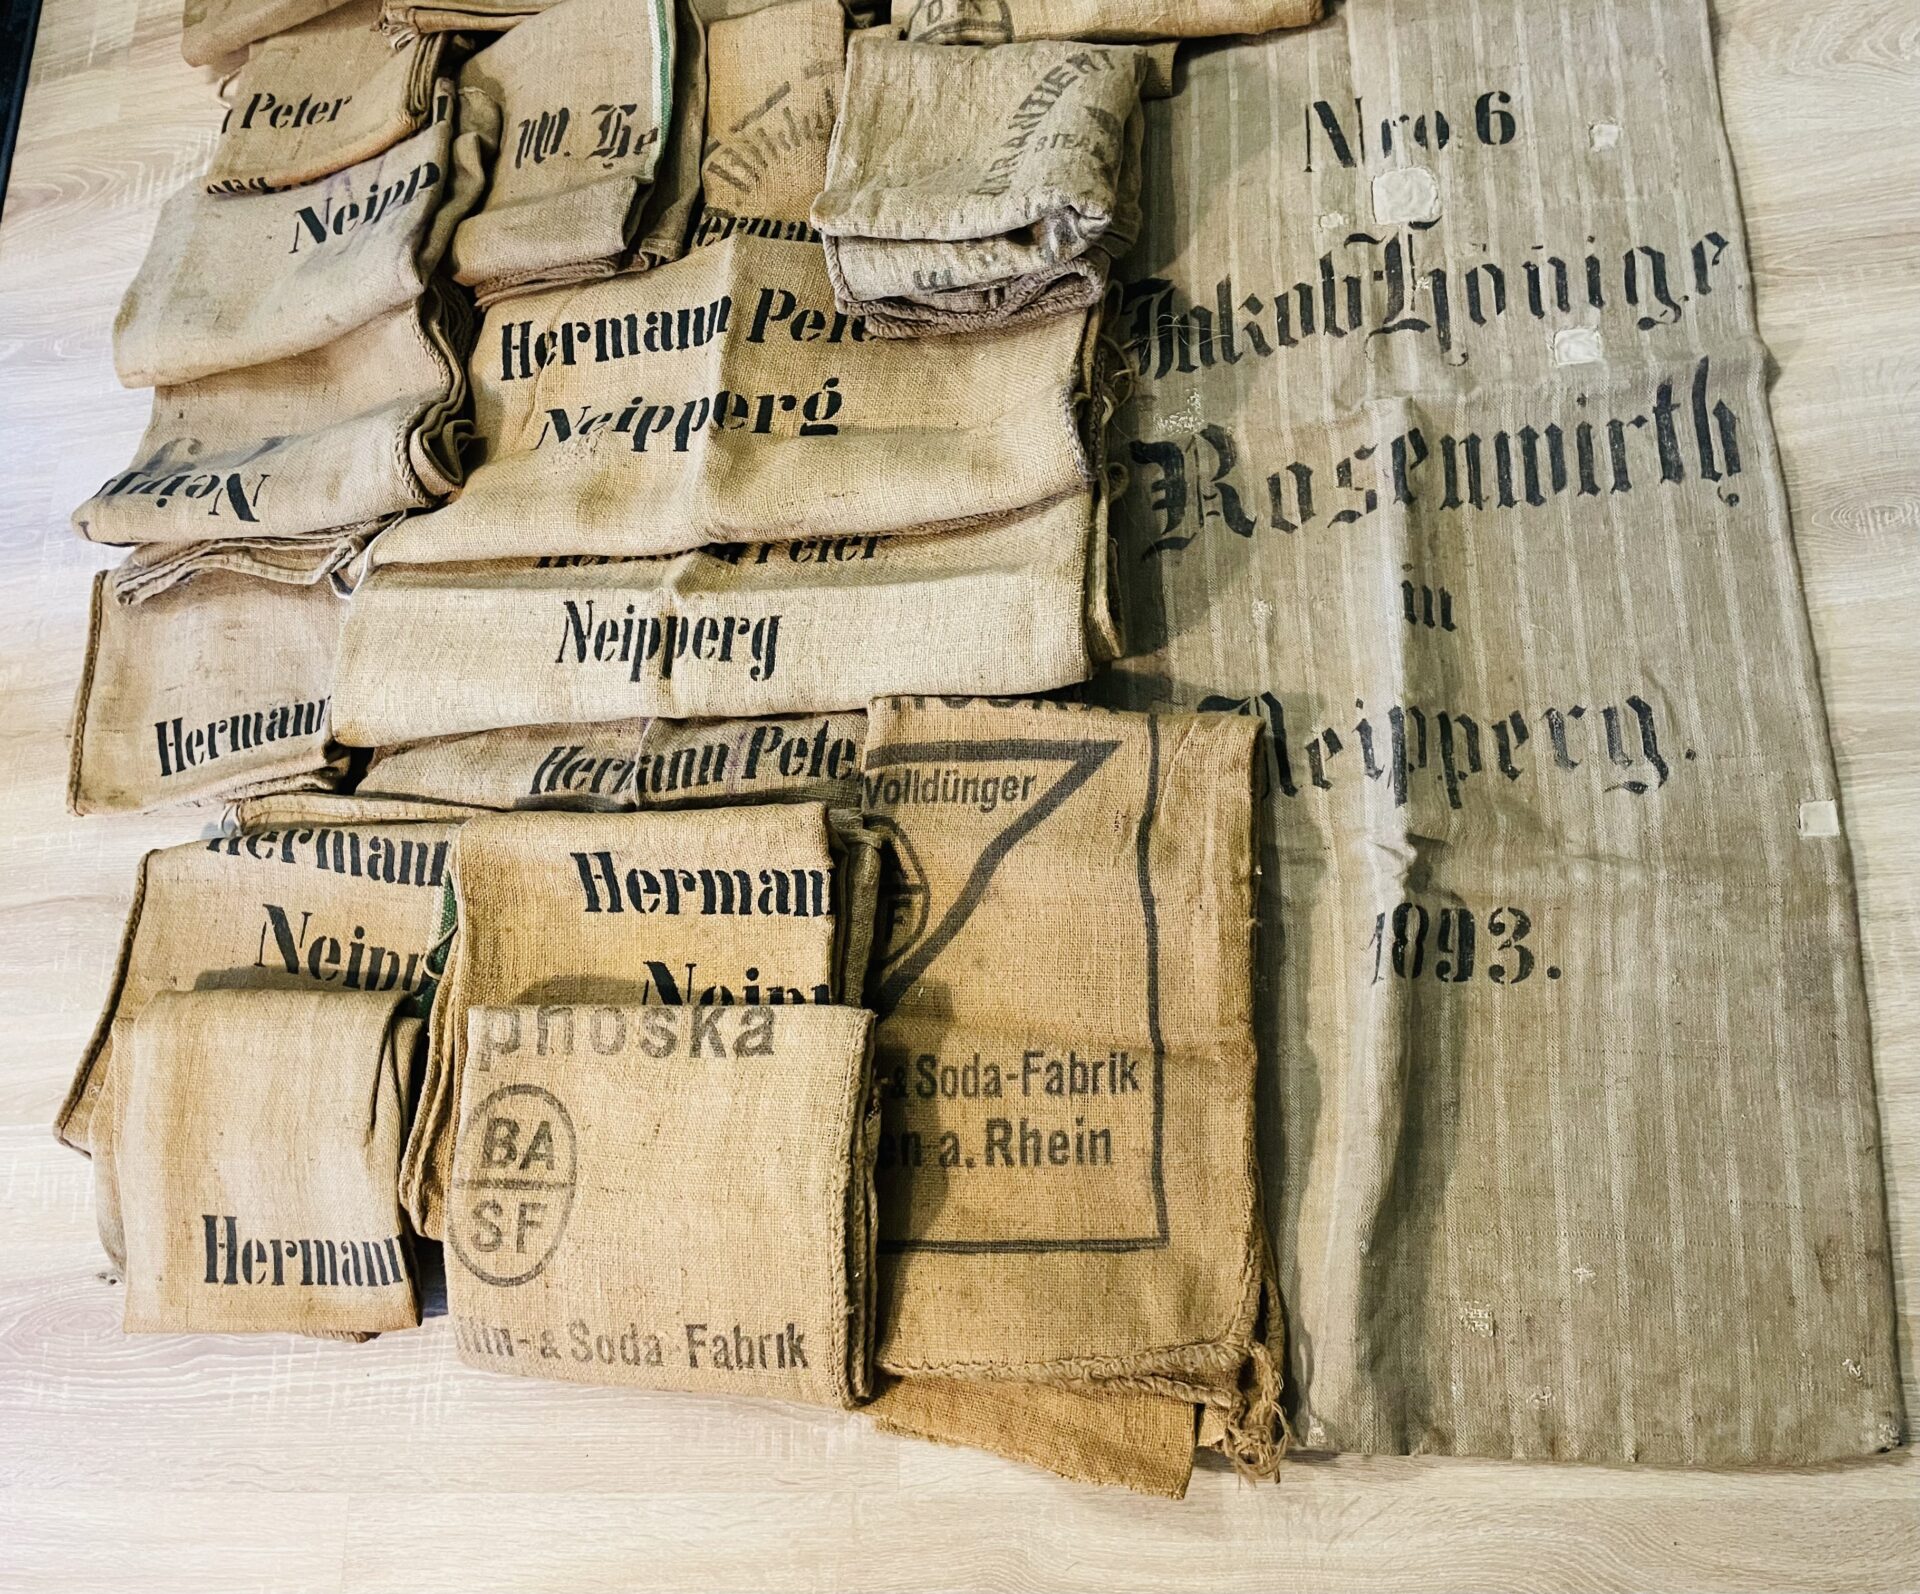 Peter
Neipp
W. He
GARANTIERT
Hermann Pete
Neipperg
Neipp
Hermann Peter
Neipperg
Hermann
Hermann Pete
Hermann
Neipp
Hermann
Neipp
Hermann
phoska
BA
SF
ilin- & Soda-Fabrik
Volldünger
& Soda-Fabrik
en a. Rhein
Nro 6
Jakob Hönige
Rosenwirth
in
Neipperg.
1893.